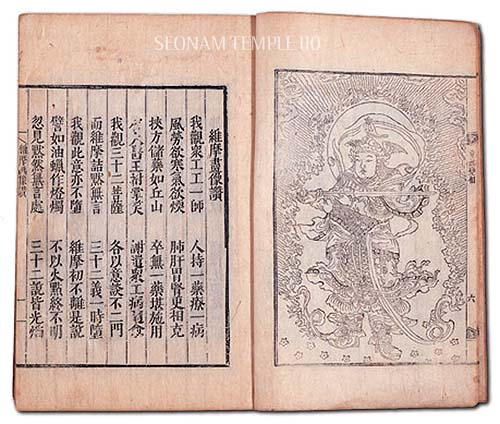 SEONAM TEMPLE 110
維摩畫像讚
我觀衆工工一師 人持一藥療一病
風勞欲寒氣欲煖 肺肝胃腎更相克
挾方儲藥如丘山 卒無一藥堪施用
大醫王拊掌笑 謝遣衆工病
我觀三十二菩薩 各以意談不二門
而維摩詰默無言 三十二義一時墮
我觀此意亦不墮 維摩初不離是說
譬如油蠟作燈燭 不以火點終不明
忽見默然無言處 三十二說皆光焰
六